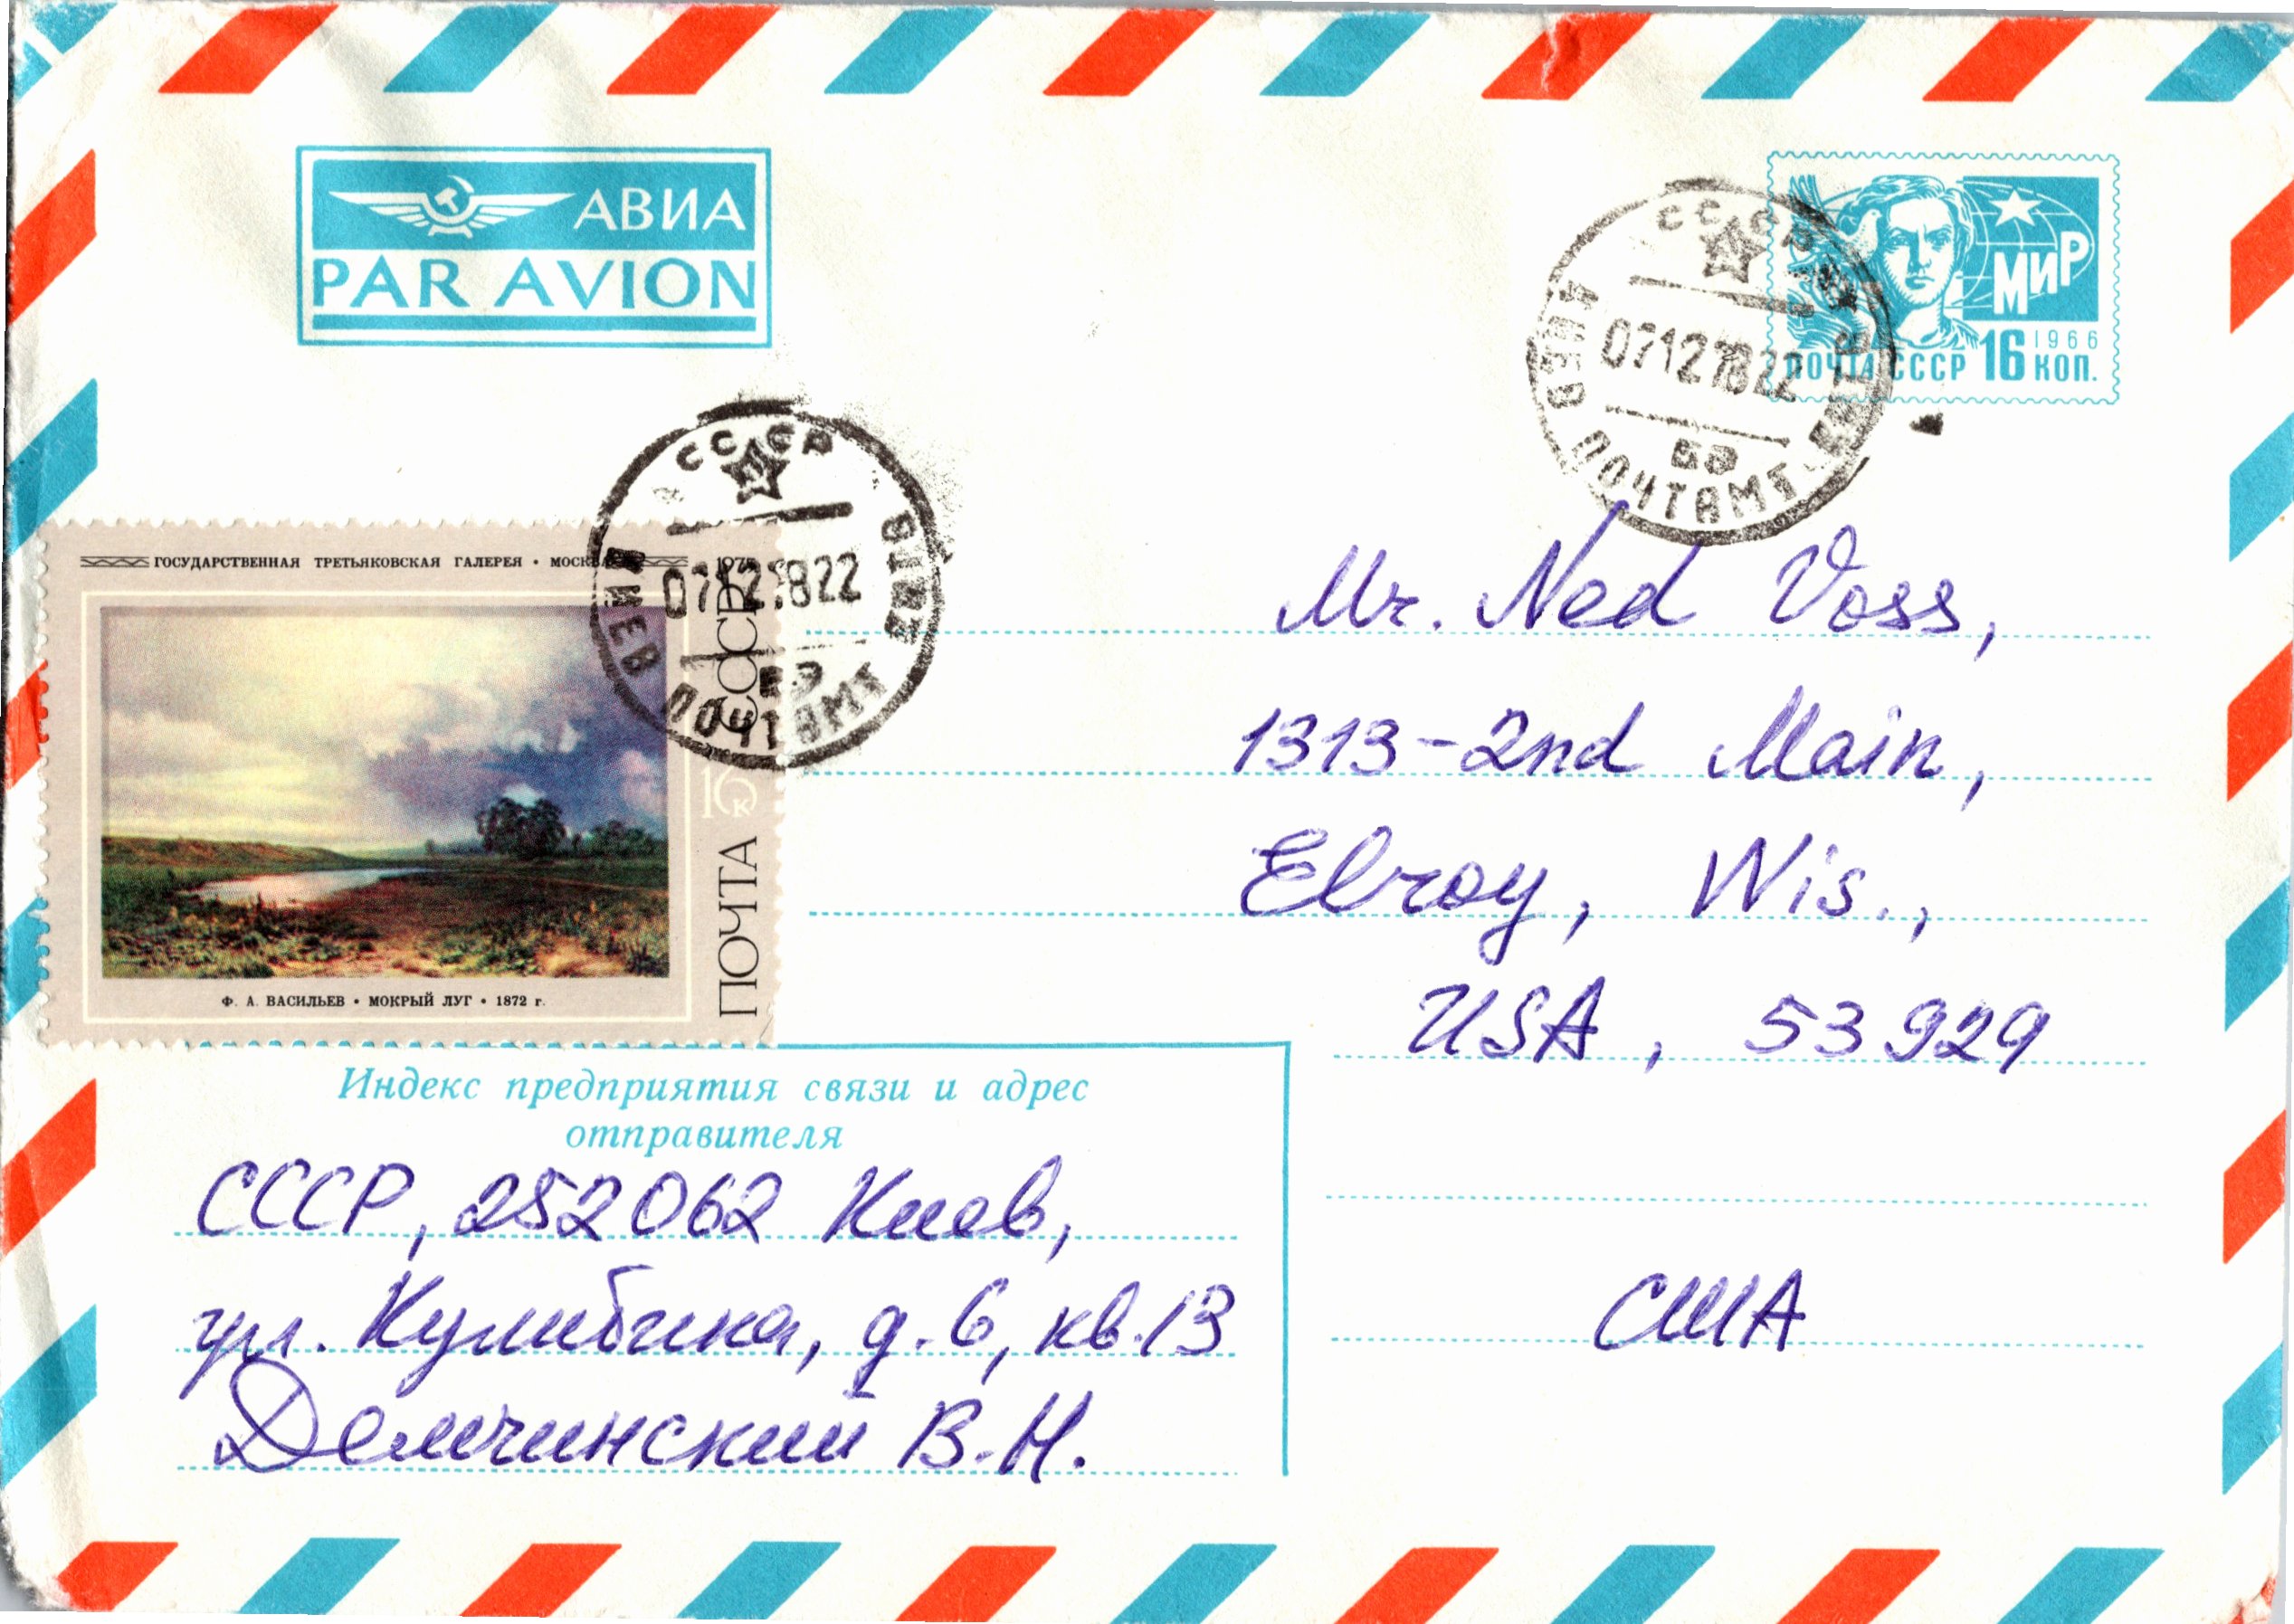 АВИА
PAR AVION
СССР
КИЕВ ПОЧТАМТ
07127822
МИР
1966
ПОЧТА СССР 16 КОП.
СССР
КИЕВ ПОЧТАМТ
07127822
ГОСУДАРСТВЕННАЯ ТРЕТЬЯКОВСКАЯ ГАЛЕРЕЯ • МОСКВА
СССР
16 К
ПОЧТА
Ф. А. ВАСИЛЬЕВ • МОКРЫЙ ЛУГ • 1872 г.
Mr. Ned Voss,
1313-2nd Main,
Elroy, Wis.,
USA, 53929
США
Индекс предприятия связи и адрес
отправителя
СССР, 252062 Киев,
ул. Кулибина, д. 6, кв. 13
Демчинский В.Н.